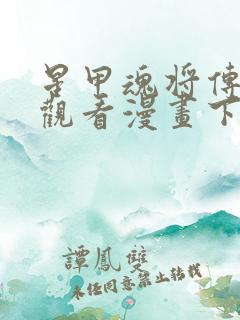 星甲魂将傳
觀看漫畫下
譚鳳雙
未任同意禁止轉載